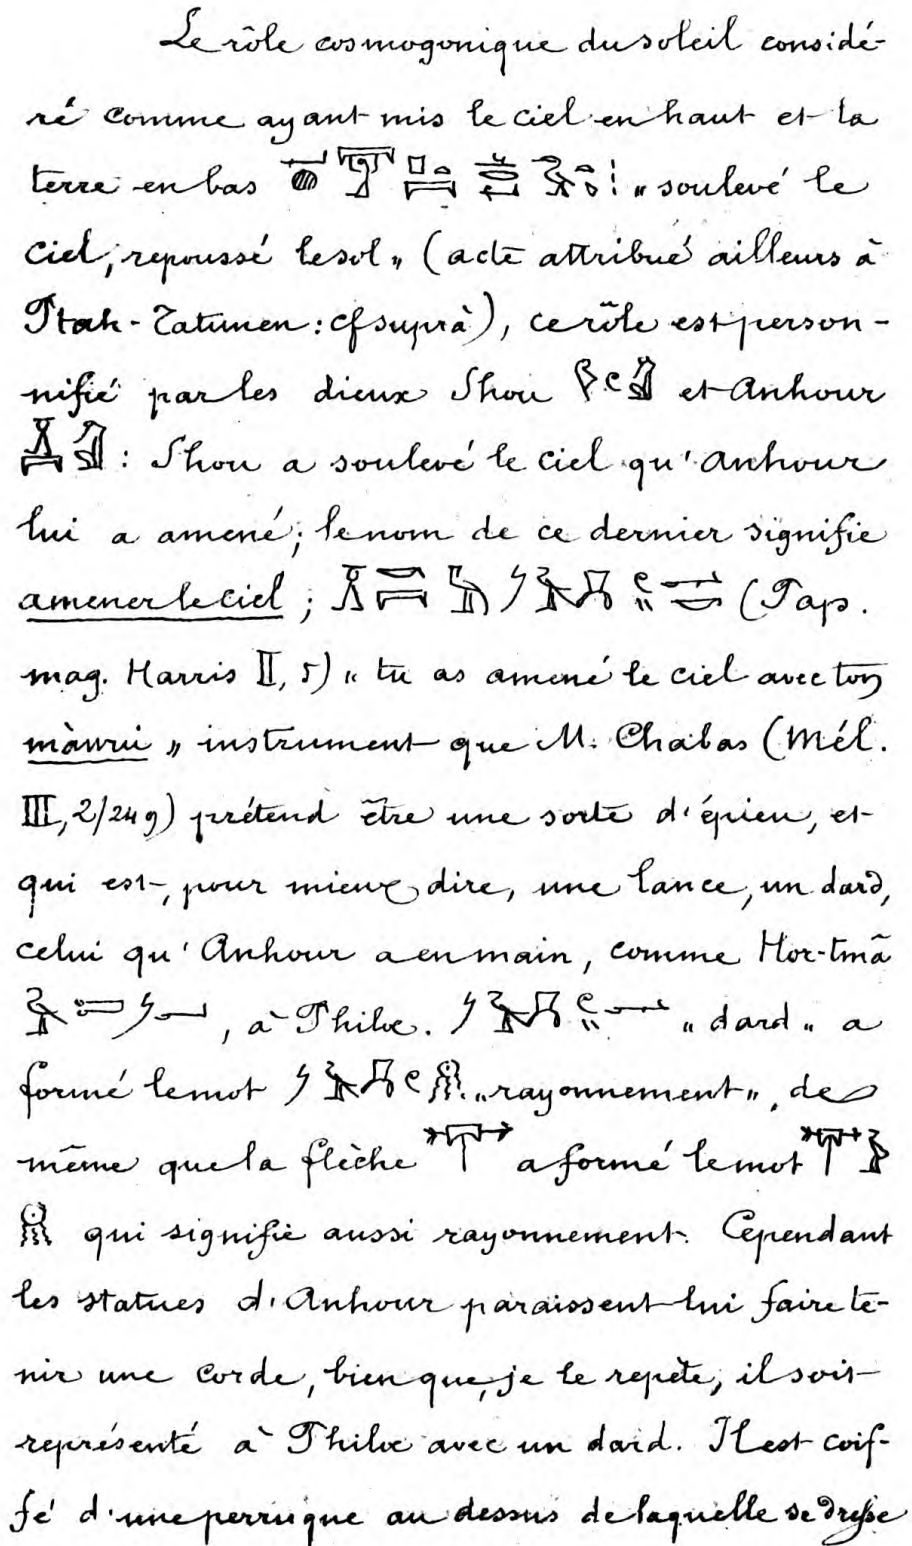 Le rôle cosmogonique du soleil considé-
ré comme ayant mis le ciel en haut et la
terre en bas " soulevé le
ciel, repoussé le sol " (acte attribué ailleurs à
Ptah-Tatunen : cf suprà), ce rôle est person-
nifié par les dieux Shou et Anhour
: Shou a soulevé le ciel qu'Anhour
lui a amené ; le nom de ce dernier signifie
amener le ciel ; (Pap.
mag. Harris II, 5) " tu as amené le ciel avec ton
màwui " instrument que M. Chabas (Mél.
III, 2/249) prétend être une sorte d'épieu, et
qui est, pour mieux dire, une lance, un dard,
celui qu'Anhour a en main, comme Hor-tmâ
, à Philæ. " dard " a
formé le mot " rayonnement ", de
même que la flèche a formé le mot
qui signifie aussi rayonnement. Cependant
les statues d'Anhour paraissent lui faire te-
nir une corde, bien que, je le repète, il soit
représenté à Philæ avec un dard. Il est coif-
fé d'une perruque au dessus de laquelle se dresse